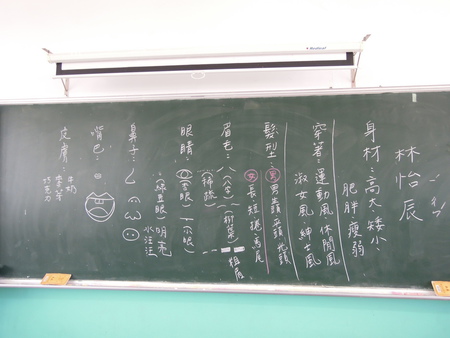 林怡辰
身材：高大、矮小、
肥胖、瘦弱
穿著：運動風 休閒風
淑女風 紳士風
髮型：男 男生頭 平頭 光頭
女 長 短 捲 馬尾
眉毛：八(八字)(柳葉)
(稀疏) 粗眉
眼睛：(杏眼)(小眼)
(綠豆眼)明亮
水汪汪
鼻子：
嘴巴：
皮膚：牛奶
巧克力